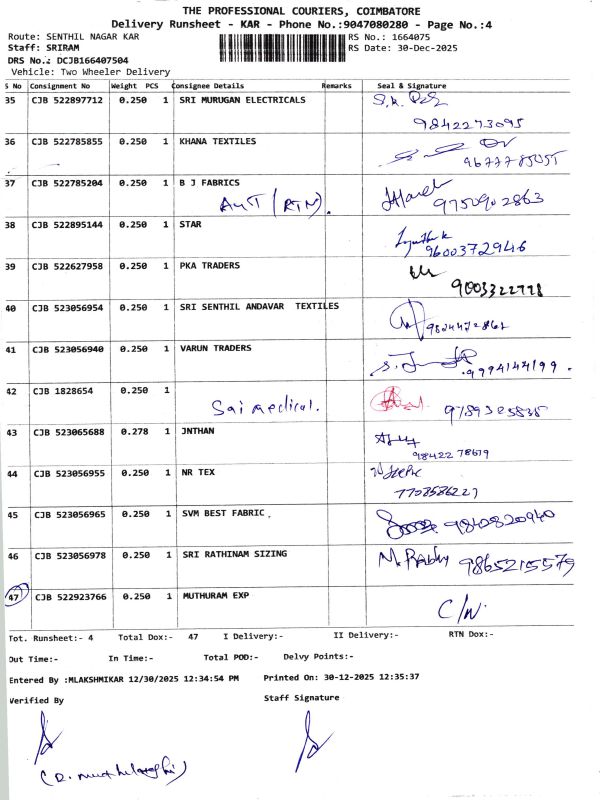 THE PROFESSIONAL COURIERS, COIMBATORE
Delivery Runsheet - KAR - Phone No.:9047080280 - Page No.:4
Route: SENTHIL NAGAR KAR RS No.: 1664075
Staff: SRIRAM RS Date: 30-Dec-2025
DRS No.: DCJB166407504
Vehicle: Two Wheeler Delivery
S No Consignment No Weight PCS Consignee Details Remarks Seal & Signature
35 CJB 522897712 0.250 1 SRI MURUGAN ELECTRICALS
9842273095
36 CJB 522785855 0.250 1 KHANA TEXTILES
37 CJB 522785204 0.250 1 B J FABRICS
(RTN). 9750902863
38 CJB 522895144 0.250 1 STAR
9600372946
39 CJB 522627958 0.250 1 PKA TRADERS
9003322778
40 CJB 523056954 0.250 1 SRI SENTHIL ANDAVAR TEXTILES
41 CJB 523056940 0.250 1 VARUN TRADERS
9994144199.
42 CJB 1828654 0.250 1
Sai medical. 9789325835
43 CJB 523065688 0.278 1 JNTHAN
98422 78679
44 CJB 523056955 0.250 1 NR TEX
7708586227
45 CJB 523056965 0.250 1 SVM BEST FABRIC.
9840820940
46 CJB 523056978 0.250 1 SRI RATHINAM SIZING
9865215579
47 CJB 522923766 0.250 1 MUTHURAM EXP
C/N.
Tot. Runsheet:- 4 Total Dox:- 47 I Delivery:- II Delivery:- RTN Dox:-
Out Time:- In Time:- Total POD:- Delvy Points:-
Entered By :MLAKSHMIKAR 12/30/2025 12:34:54 PM Printed On: 30-12-2025 12:35:37
Verified By Staff Signature